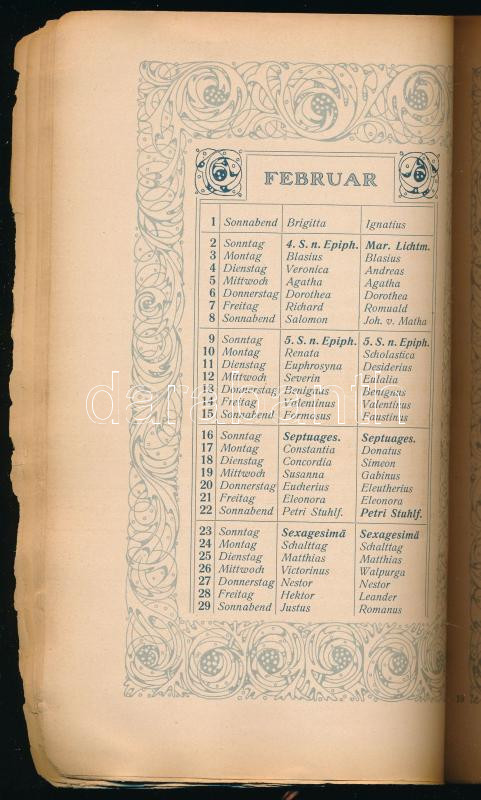 FEBRUAR
1 Sonnabend Brigitta Ignatius
2 Sonntag 4. S. n. Epiph. Mar. Lichtm.
3 Montag Blasius Blasius
4 Dienstag Veronica Andreas
5 Mittwoch Agatha Agatha
6 Donnerstag Dorothea Dorothea
7 Freitag Richard Romuald
8 Sonnabend Salomon Joh. v. Matha
9 Sonntag 5. S. n. Epiph. 5. S. n. Epiph.
10 Montag Renata Scholastica
11 Dienstag Euphrosyna Desiderius
12 Mittwoch Severin Eulalia
13 Donnerstag Benignus Benignus
14 Freitag Valentinus Valentinus
15 Sonnabend Formosus Faustinus
16 Sonntag Septuages. Septuages.
17 Montag Constantia Donatus
18 Dienstag Concordia Simeon
19 Mittwoch Susanna Gabinus
20 Donnerstag Eucherius Eleutherius
21 Freitag Eleonora Eleonora
22 Sonnabend Petri Stuhlf. Petri Stuhlf.
23 Sonntag Sexagesimä Sexagesimä
24 Montag Schalttag Schalttag
25 Dienstag Matthias Matthias
26 Mittwoch Victorinus Walpurga
27 Donnerstag Nestor Nestor
28 Freitag Hektor Leander
29 Sonnabend Justus Romanus
darabanth